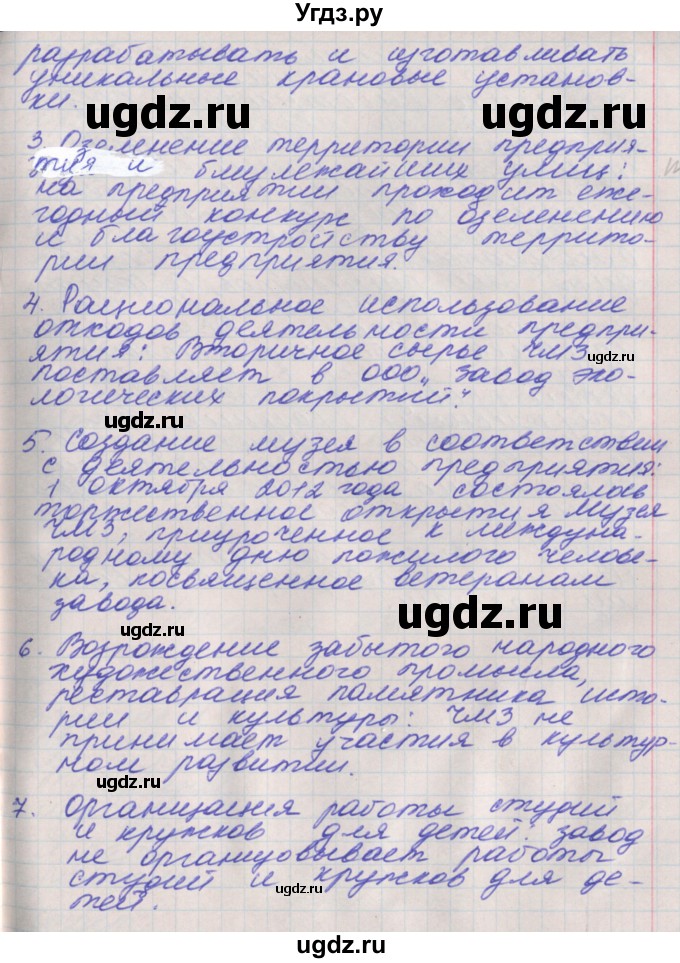 Угдз.ру
разрабатывать и изготавливать
уникальные крановые установ-
ки.
ugdz.ru
ugdz.ru
3. Озеленение территории предприя-
тия и близлежайших улиц:
на предприятии проходит еже-
годный конкурс по озеленению
и благоустройству террито-
рии предприятия.
ugdz.ru
4. Рациональное использование
отходов деятельности предпри-
ятия: Вторичное сырье ЧМЗ
ugdz.ru
поставляет в ООО „Завод эко-
логических покрытий."
ugdz.ru
5. Создание музея в соответствии
с деятельностью предприятия:
1 октября 2012 года состоялось
торжественное открытия музея
ЧМЗ, приуроченное к междуна-
родному дню пожилого челове-
ка, посвященное ветеранам
завода.
ugdz.ru
ugdz.ru
6. Возрождение забытого народного
художественного промысла,
реставрация памятника исто-
рии и культуры: ЧМЗ не
принимает участия в культур-
ном развитии.
ugdz.ru
7. Организация работы студий
и кружков для детей: завод
не организовывает работы
студий и кружков для де-
тей.
ugdz.ru
ugdz.ru